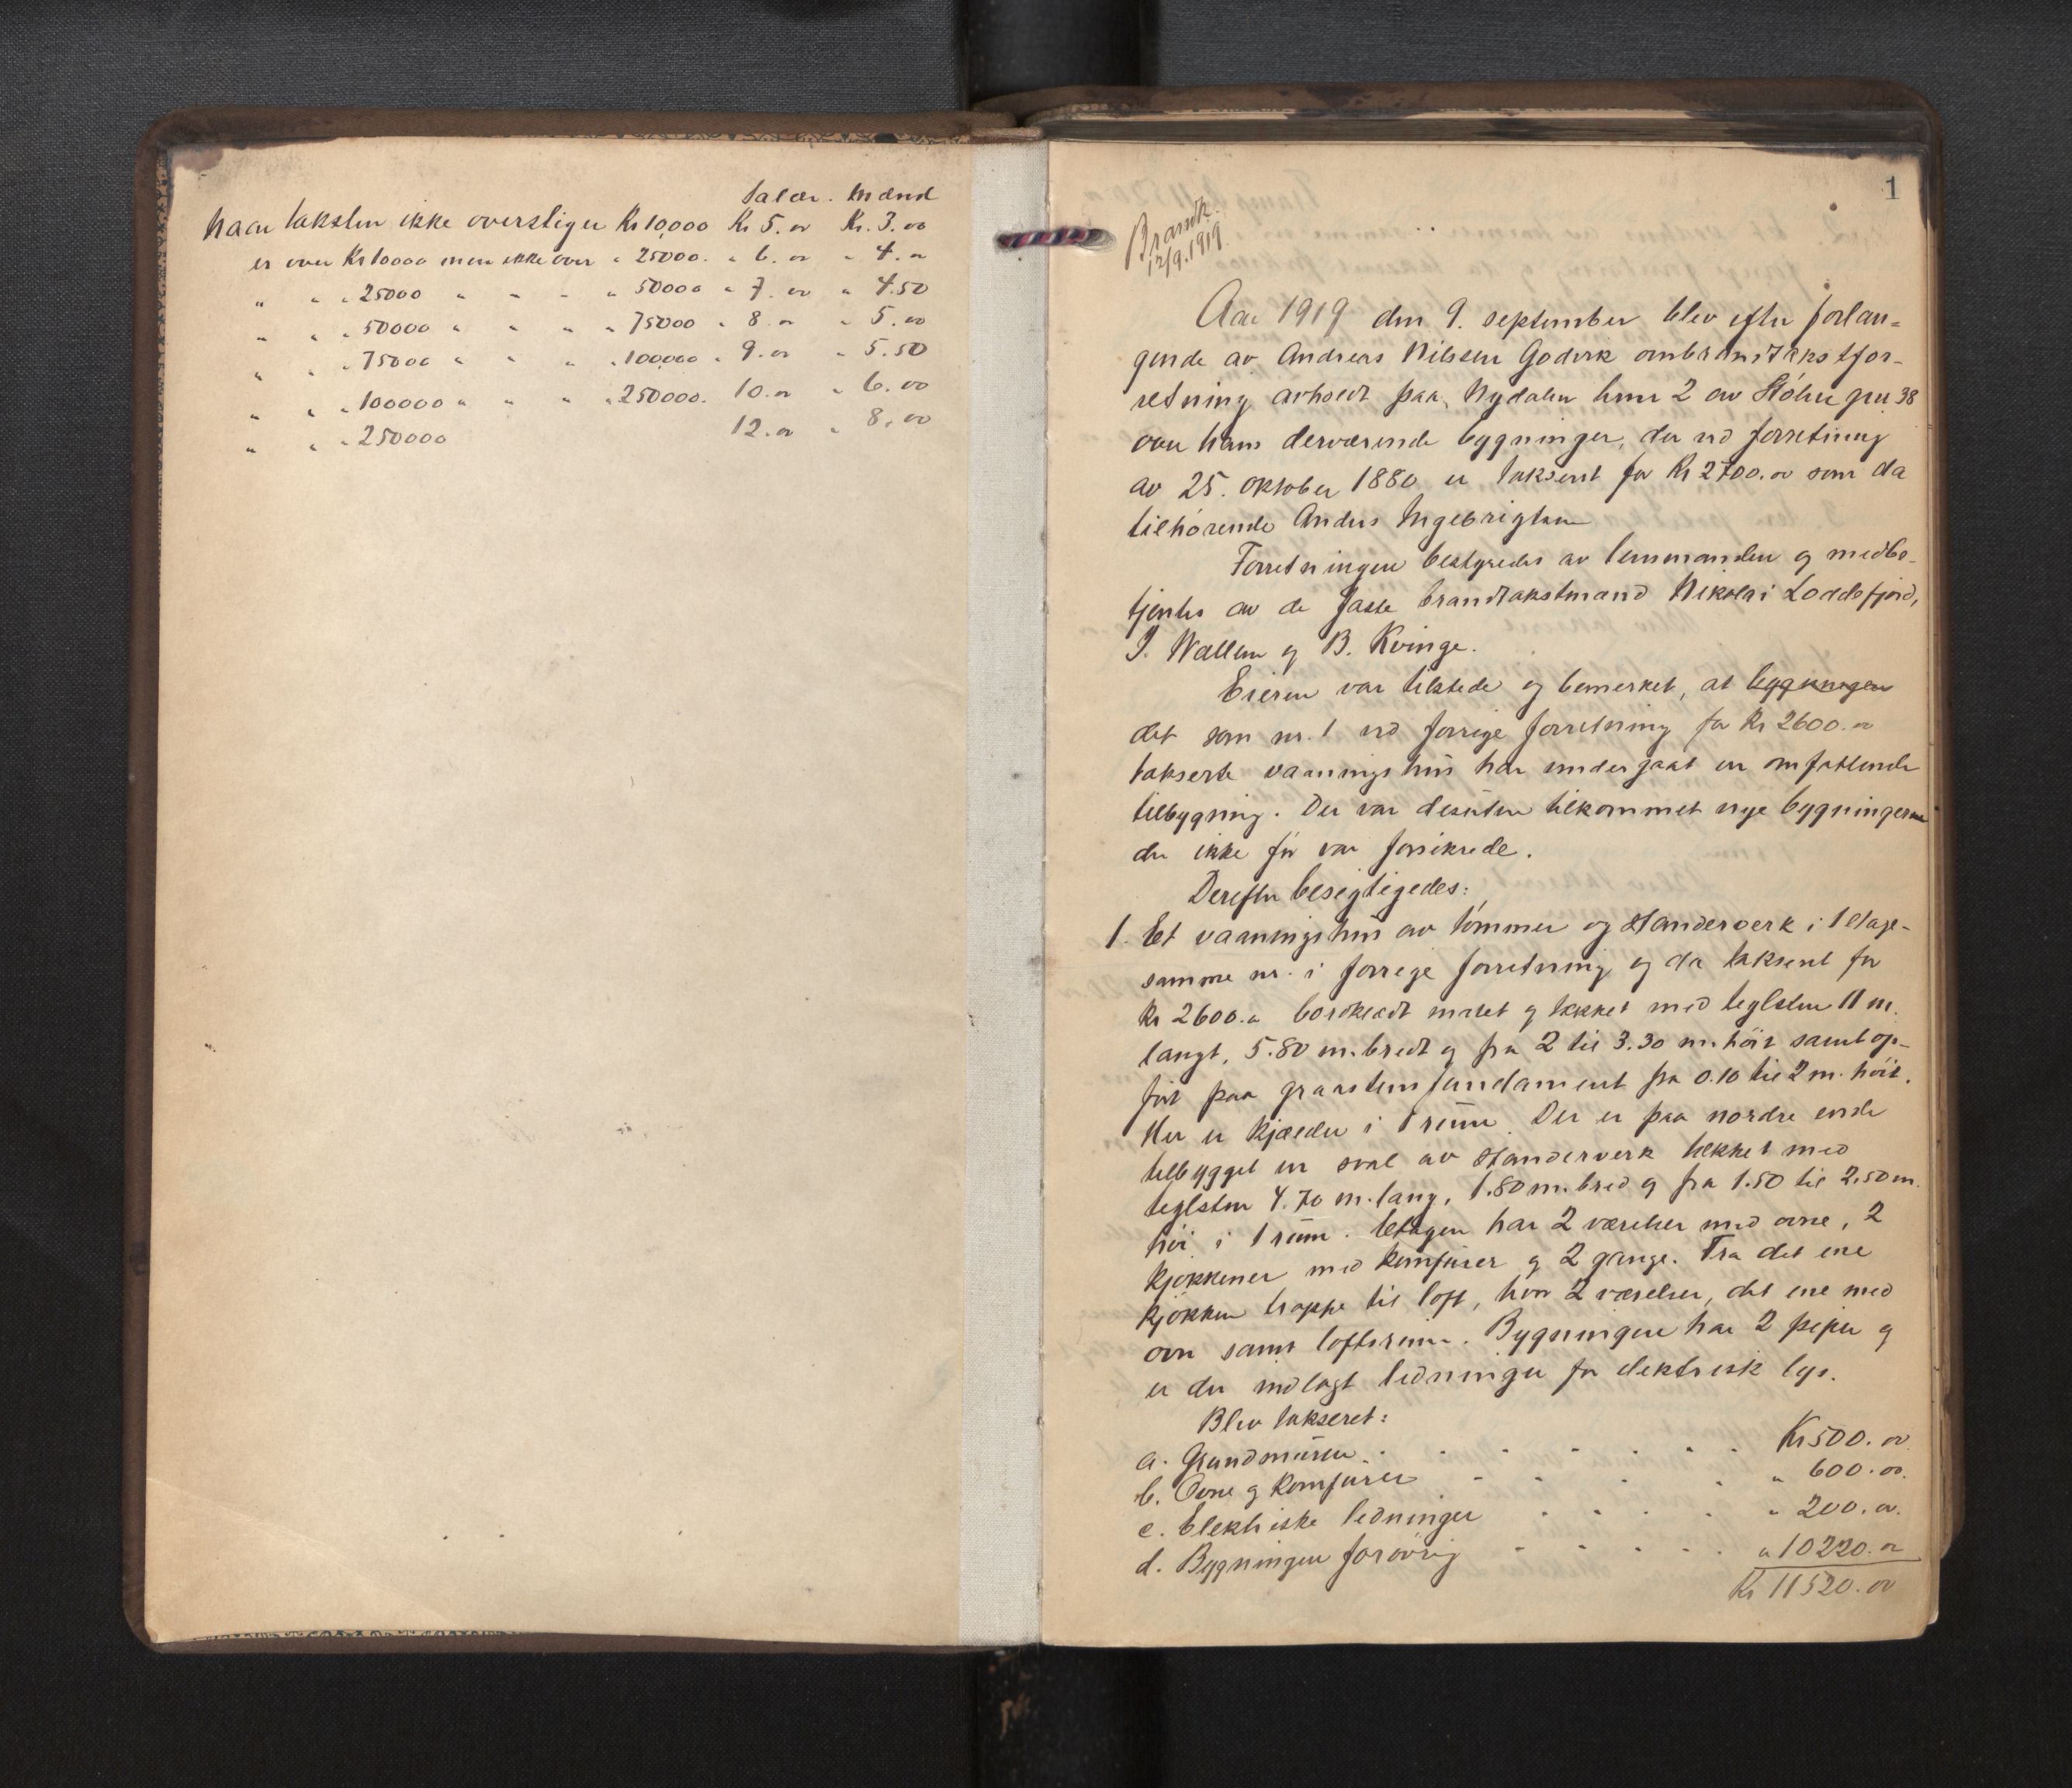 Salær. Mænd
Naar taksten ikke overstiger Kr 10,000 Kr 5.00 Kr. 3.00
er over Kr 10000 men ikke over " 25000. " 6.00 " 4.00
" " " 25000 " " " " 50000 " 7.00 " 4.50
" " " 50000 " " " " 75000 " 8.00 " 5.00
" " " 75000 " " " " 100,000 " 9.00 " 5.50
" " " 100000 " " " " 250000. 10.00 " 6.00
" " " 250000 12.00 " 8.00
1
12/9.1919.
Aar 1919 den 9. september blev efter forlan=
gende av Andreas Nilssen Godvik ombrandtakstfor-
retning avholdt paa Nydalen brnr 2 av gnr. 38
over hans derværende bygninger, der ved forretning
av 25. oktober 1880 er taksert for Kr 2700.00 som da
tilhørende Anders Ingebrigtsen
Forretningen bestyredes av lensmanden og medbe-
tjentes av de faste brandtakstmænd Nikolai Loddefjord,
J. Wallem og B. Kvinge.
Eieren var tilstede og bemerket, at bygningen
det som nr. 1 ved forrige forretning for Kr 2600.00
takserte vaaningshus har undergaat en omfattende
tilbygning. Der var desuten tilkommet nye bygninger
der ikke før var forsikrede.
Derefter besigtigedes:
1. Et vaaningshus av tømmer og standerverk i 1 etage-
samme nr. i forrige forretning og da taksert for
Kr 2600.00 bordklædt malet og tækket med teglsten 11 m.
langt, 5.80 m. bredt og fra 2 til 3.30 m. høit samt op-
ført paa graastensfundament fra 0.10 til 2 m. høit.
Her er kjælder i 1 rum. Der er paa nordre ende
tilbygget en sval av standerverk tækket med
teglsten 4.70 m. lang, 1.80 m. bred og fra 1.50 til 2.50 m.
høi i 1 rum. Etagen har 2 værelser med ovne, 2
kjøkkener med komfurer og 2 gange. Fra det ene
kjøkken trappe til loft, hvor 2 værelser, det ene med
ovn samt loftsrum. Bygningen har 2 piper og
er der indlagt ledninger for elektrisk lys.
Blev taksert:
a. Grundmuren . . . . . . . Kr 500.00
b. Ovne og komfurer . . . . . " 600.00.
c. Elektriske ledninger . . . . " 200.00.
d. Bygningen forøvrig . . . . . " 10220.00
Kr 11520.00